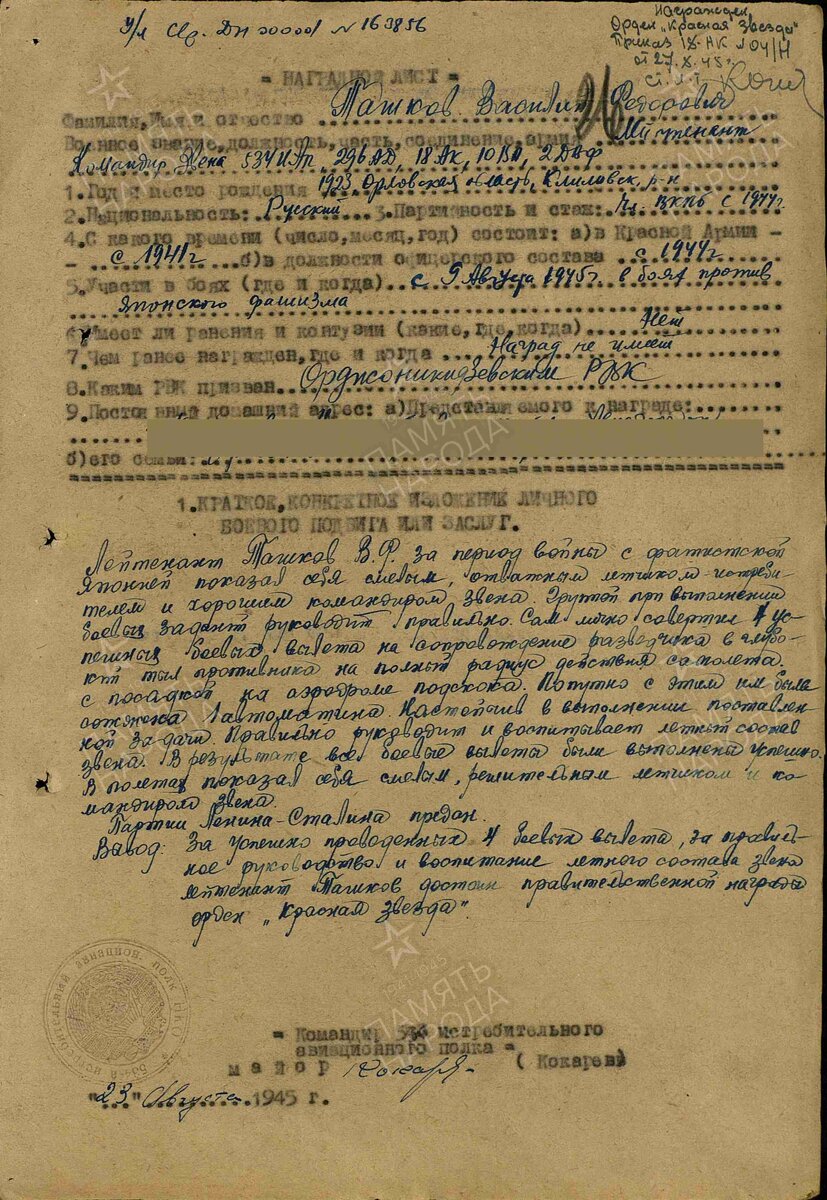 У/л Ср. ДН 20001 № 163856
Награжден
Орден „Красная Звезда"
Приказ 18 АК № 04/Н
от 27.8.45г.
= НАГРАДНОЙ ЛИСТ =
Фамилия, Имя и отчество Ташков Василий Федорович
Военное звание, должность, часть, соединение, армия Л-й-тенант
Командир Звена 534 ИАП, 296 АД, 18 АК, 10 ВА, 2 ДВФ
1. Год и место рождения 1923, Орловская область, р-н
2. Национальность: Русский 3. Партийность и стаж: Чл. ВКПб с 1944г
4. С какого времени (число, месяц, год) состоит: а) в Красной Армии -
- с 1941г б) в должности офицерского состава с 1944г
5. Участи в боях (где и когда) с 9 Августа 1945г. в боях против
Японского фашизма
6. Имеет ли ранения и контузии (какие, где, когда) Нет
7. Чем ранее награжден, где и когда Наград не имеет
8. Каким РВК призван Орджоникидзевским РВК
9. Постоянный домашний адрес: а) Представляемого к награде:
б) его семьи:
1. КРАТКОЕ, КОНКРЕТНОЕ ИЗЛОЖЕНИЕ ЛИЧНОГО
БОЕВОГО ПОДВИГА ИЛИ ЗАСЛУГ.
Лейтенант Ташков В.Ф. за период войны с фашистской
Японией показал себя смелым, отважным летчиком-истреби-
телем и хорошим командиром звена. Группой при выполнении
боевых заданий руководит правильно. Сам лично совершил 4 ус-
пешных боевых вылета на сопровождение разведчика в глубо-
кий тыл противника на полный радиус действия самолета.
с посадкой на аэродроме подскока. Попутно с этим им была
сожжена 1 автомашина. Настойчив в выполнении поставлен-
ной задачи. Правильно руководит и воспитывает летный состав
звена. В результате все боевые вылеты были выполнены успешно.
В полетах показал себя смелым, решительным летчиком и ко-
мандиром звена.
Партии Ленина-Сталина предан.
Вывод: За успешно проведенных 4 боевых вылета, за правиль-
ное руководство и воспитание летного состава звена
лейтенант Ташков достоин правительственной награды
орден „Красная Звезда".
= Командир 534 истребительного
авиационного полка =
майор Кокарев (Кокарев)
"23" Августа 1945 г.
ПАМЯТЬ
НАРОДА